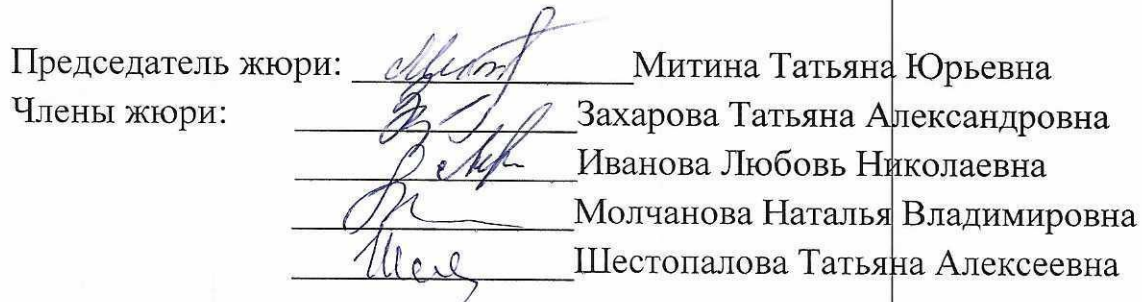 Председатель жюри: Митина Татьяна Юрьевна
Члены жюри: Захарова Татьяна Александровна
Иванова Любовь Николаевна
Молчанова Наталья Владимировна
Шестопалова Татьяна Алексеевна